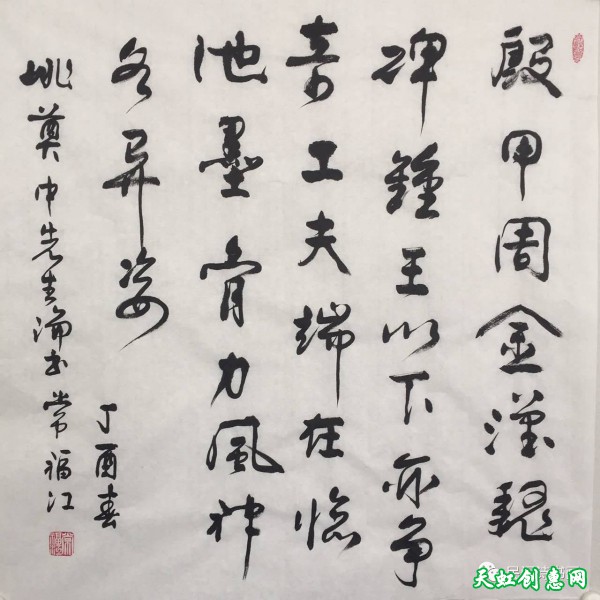 殷甲周金漢魏
碑鍾王以下亦争
奇工夫端在臨
池墨骨力風神
各異姿
丁酉春
姚奠中先生論书 常福江
天虹创惠网